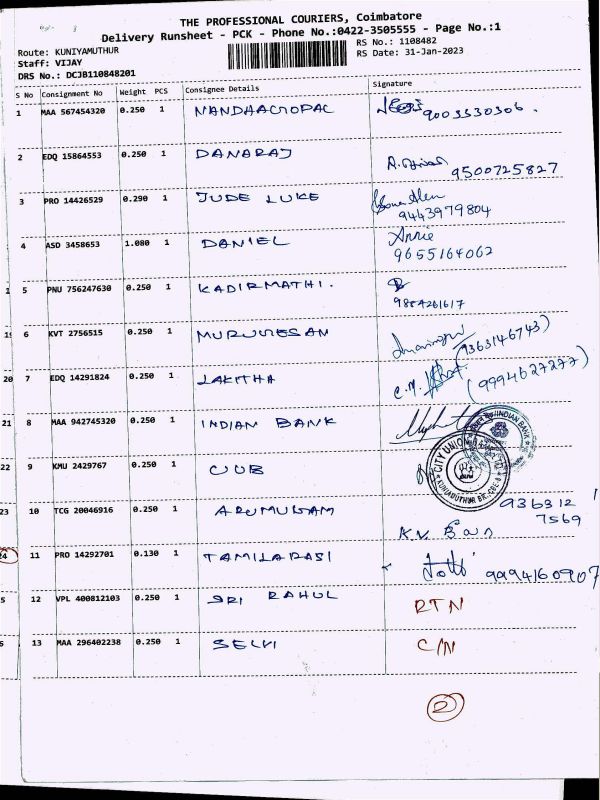 THE PROFESSIONAL COURIERS, Coimbatore
Delivery Runsheet - PCK - Phone No.:0422-3505555 - Page No.:1
Route: KUNIYAMUTHUR
RS No.: 1108482
Staff: VIJAY
RS Date: 31-Jan-2023
DRS No.: DCJB110848201
S No Consignment No Weight PCS Consignee Details Signature
1 MAA 567454320 0.250 1 NANDHAGOPAL 9003530306.
2 EDQ 15864553 0.250 1 DANARAJ 9500725827
3 PRO 14426529 0.290 1 JUDE LUKE 9443979804
4 ASD 3458653 1.080 1 DANIEL Annie
9655164062
5 PNU 756247630 0.250 1 KADIRMATHI. 9884261617
6 KVT 2756515 0.250 1 MURUGESAN (9363146743)
7 EDQ 14291824 0.250 1 LAKITHA (9994627277)
8 MAA 942745320 0.250 1 INDIAN BANK
INDIAN BANK
9 KMU 2429767 0.250 1 CUB
CITY UNION
10 TCG 20046916 0.250 1 ARUMUGAM 936312
7569
K.V.
11 PRO 14292701 0.130 1 TAMILARASI 9994160907
12 VPL 400812103 0.250 1 SRI RAHUL RTN
13 MAA 296402238 0.250 1 SELVI C/N
2